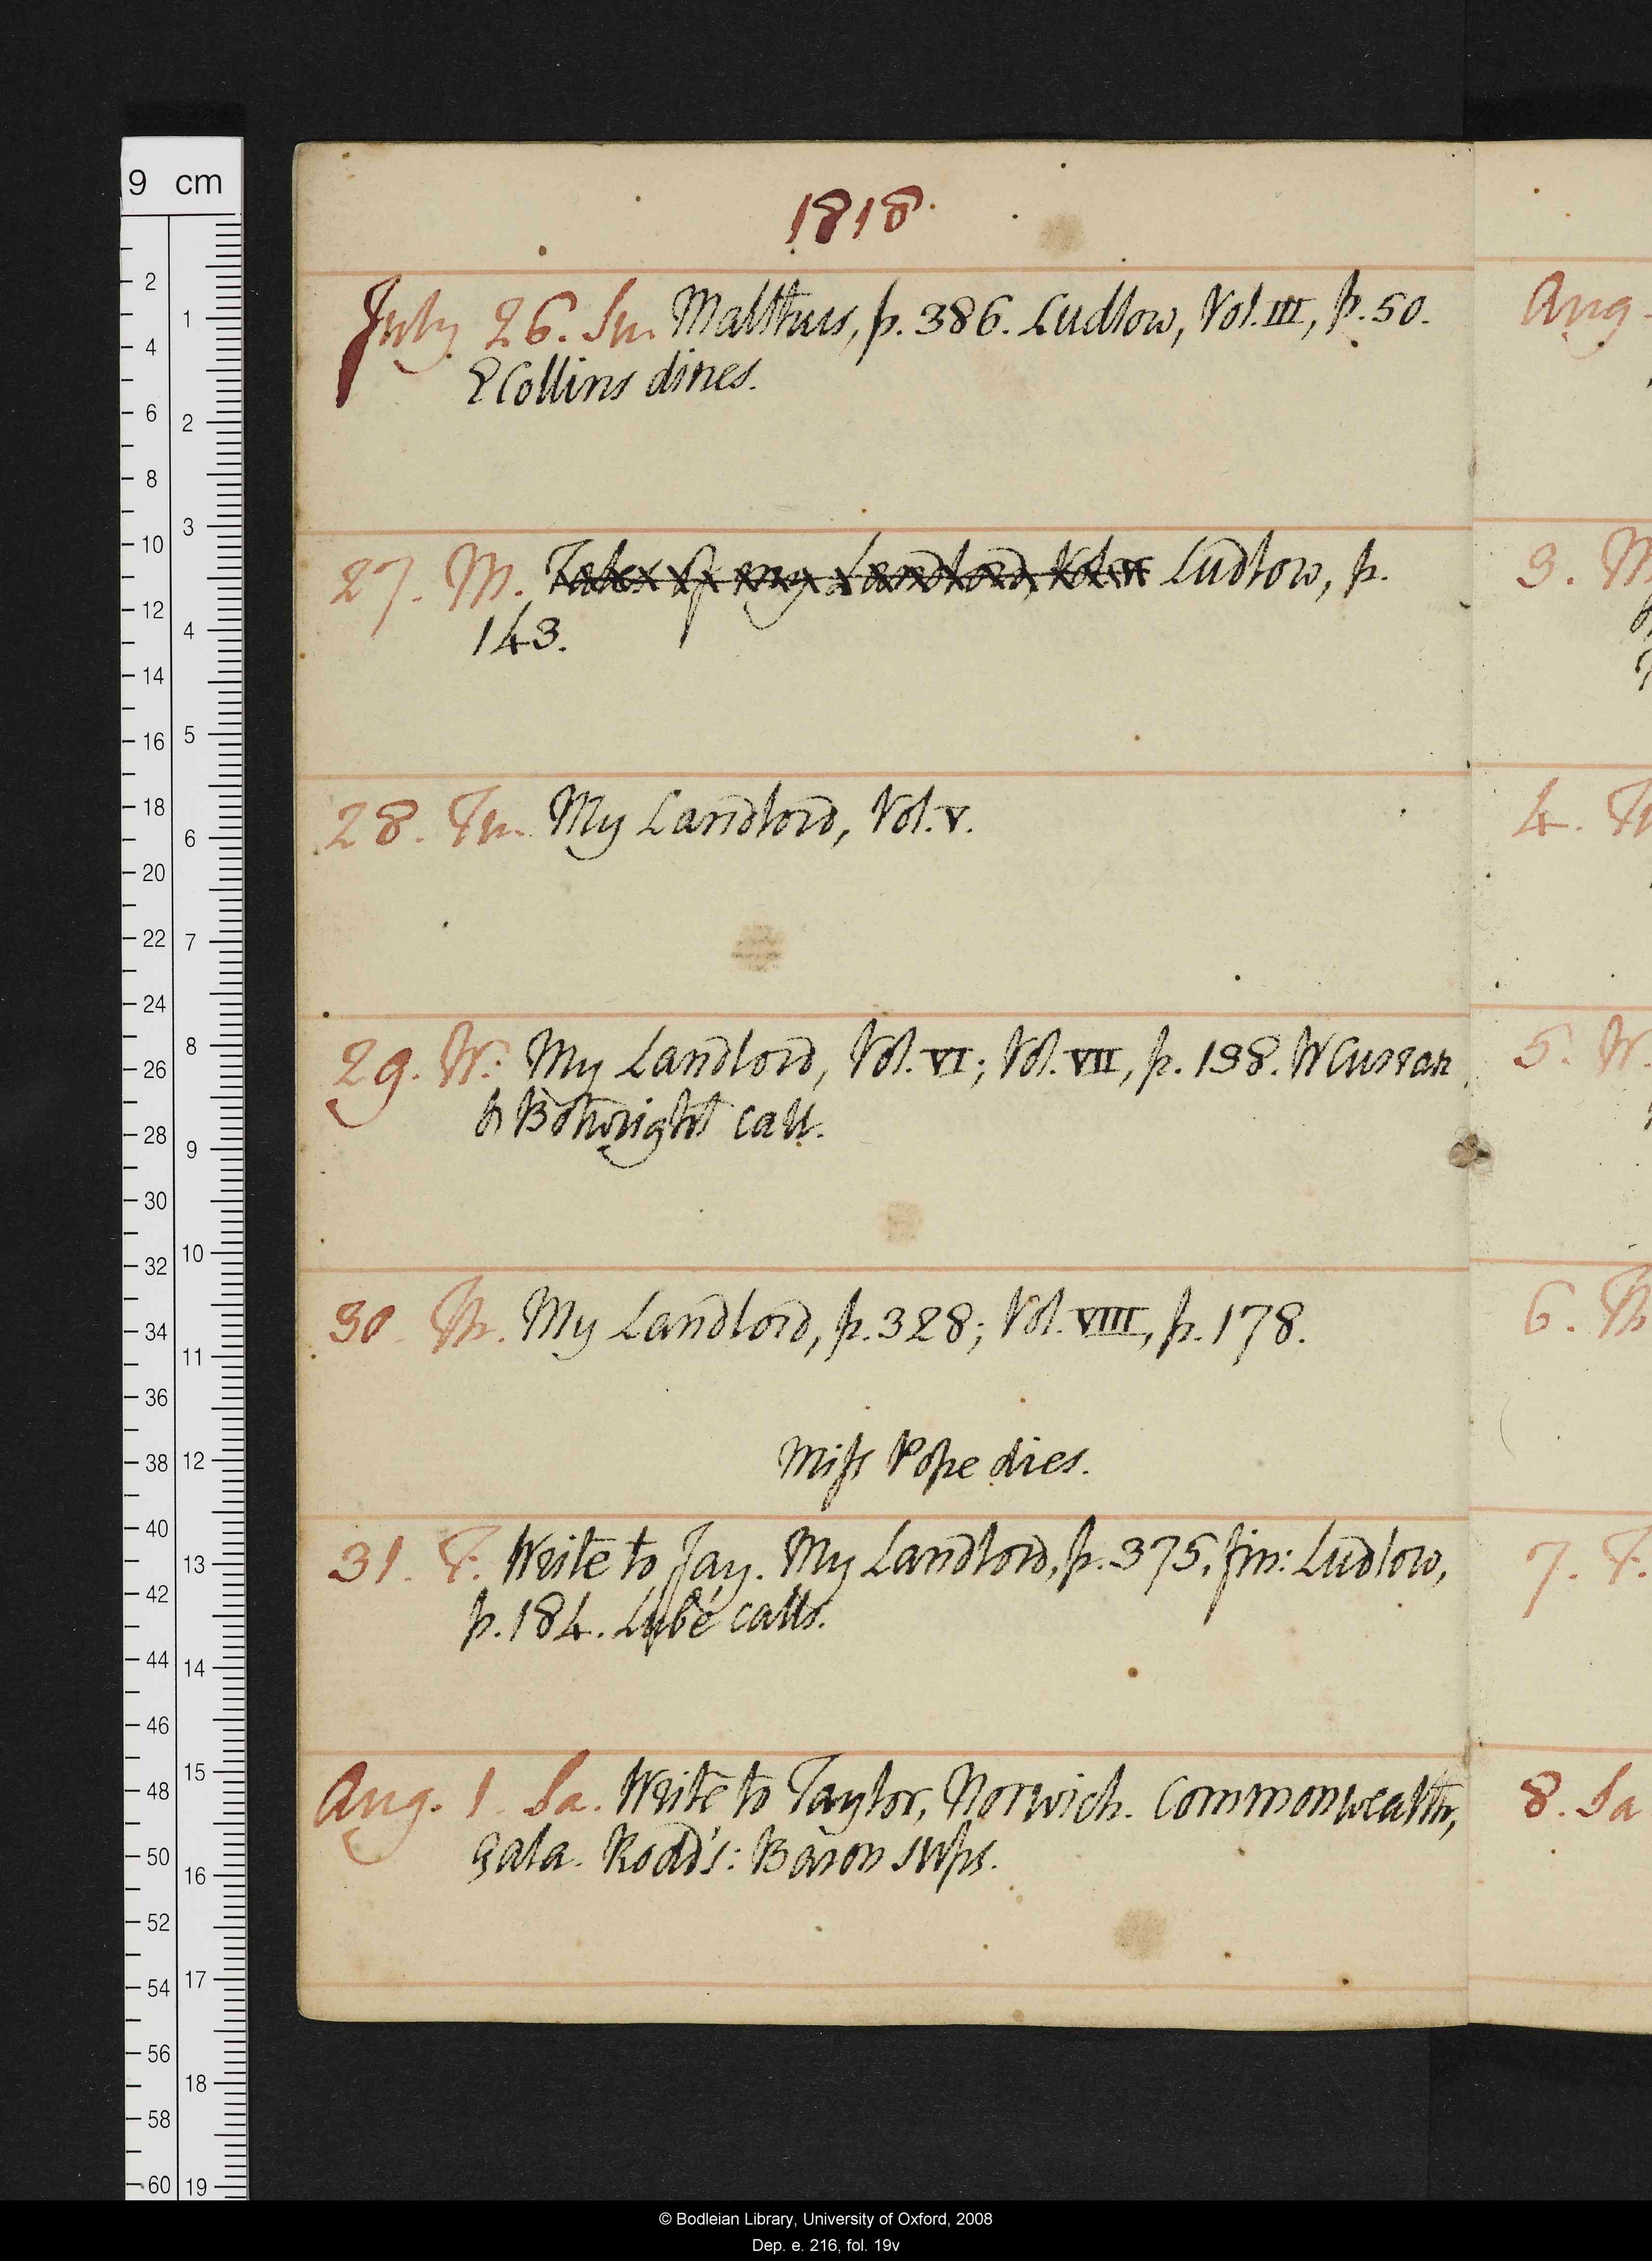 1818.
July 26. Su. Malthus, p. 386. Ludlow, Vol. III, p. 50.
E Collins dines.
27. M. Tales of my Landlord, Vol. Ludlow, p.
143.
28. Tu. My Landlord, Vol. V.
29. W. My Landlord, Vol. VI; Vol. VII, p. 198. W Curran
& Botwright call.
30. Th. My Landlord, p. 328; Vol. VIII, p. 178.
Miss Pope dies.
31. F. Write to Jay. My Landlord, p. 375, fin: Ludlow,
p. 184. Lubé calls.
Aug. 1. Sa. Write to Taylor, Norwich. Commonwealth,
çala. Rodd's: Baron sups.
Aug.
3. M
4. Tu
5. W.
6. Th
7. F.
8. Sa
9 cm
2
4
6
8
10
12
14
16
18
20
22
24
26
28
30
32
34
36
38
40
42
44
46
48
50
52
54
56
58
60
1
2
3
4
5
6
7
8
9
10
11
12
13
14
15
16
17
18
19
© Bodleian Library, University of Oxford, 2008
Dep. e. 216, fol. 19v